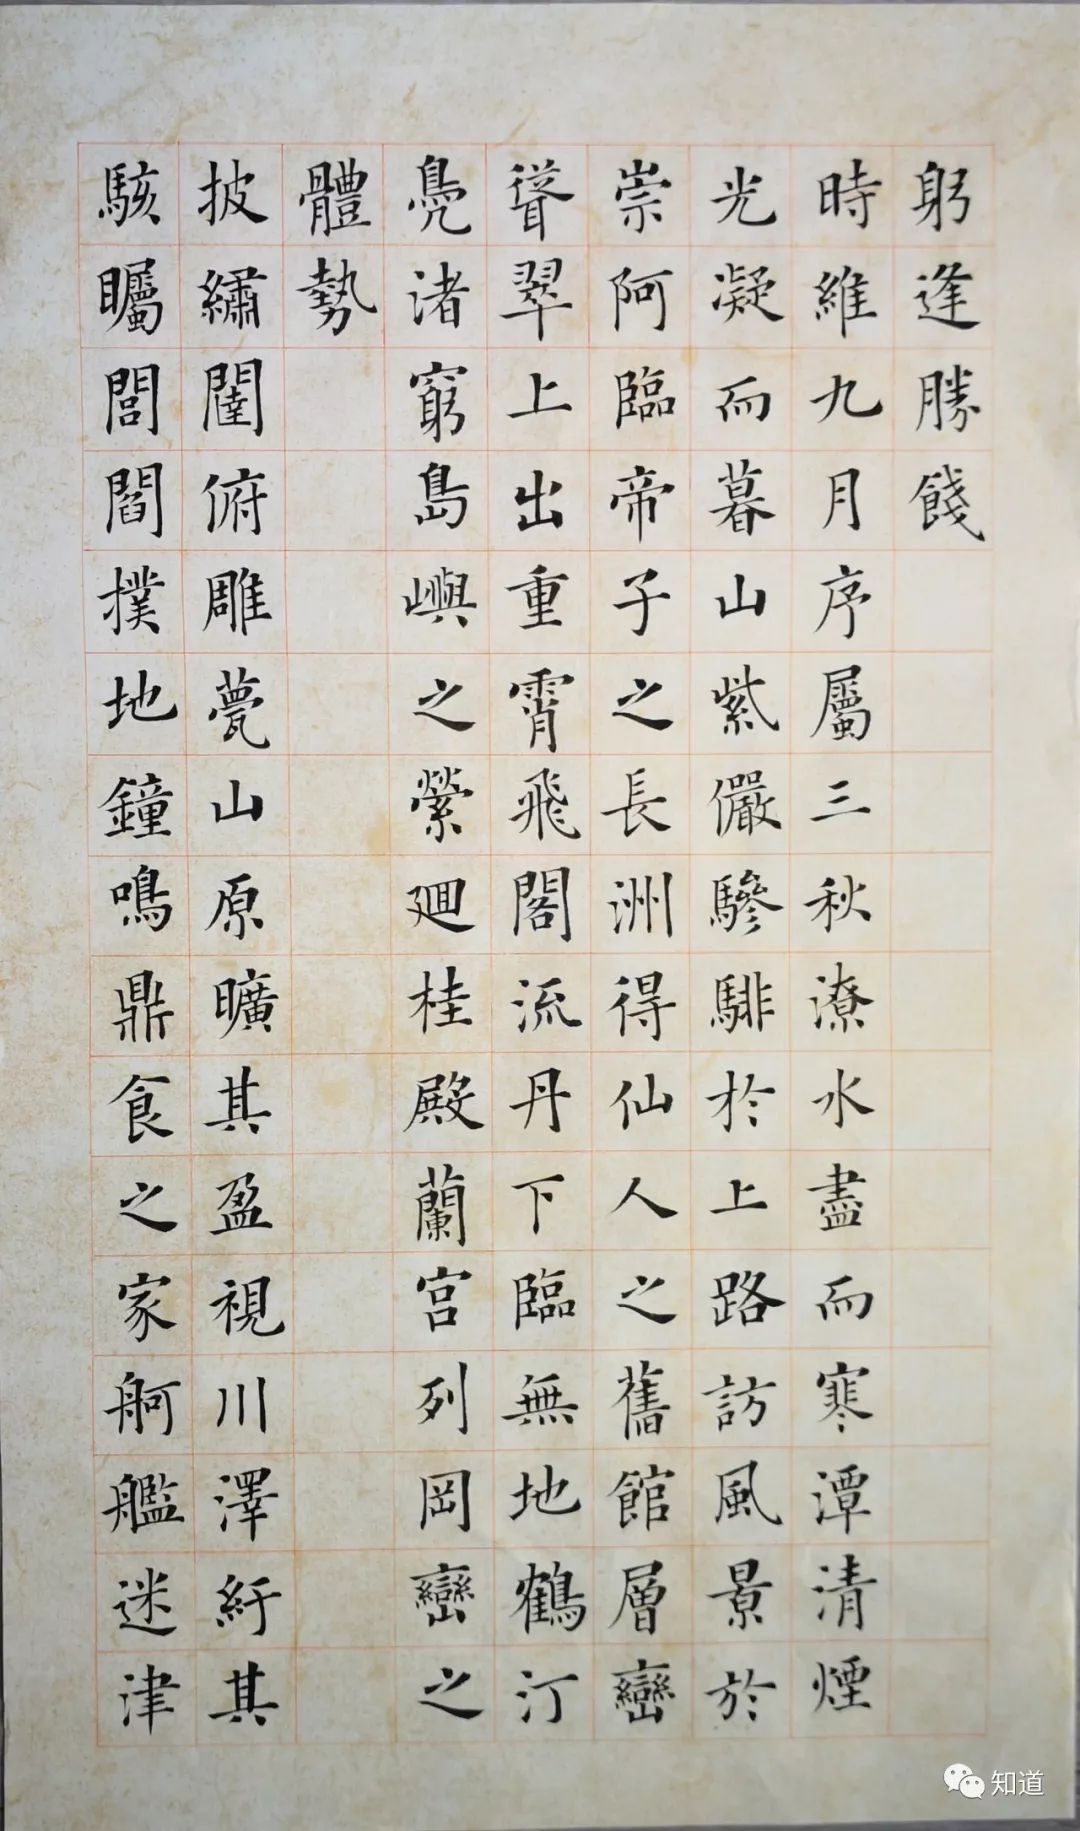 躬逢勝餞
時維九月序屬三秋潦水盡而寒潭清煙
光凝而暮山紫儼驂騑於上路訪風景於
崇阿臨帝子之長洲得仙人之舊館層巒
聳翠上出重霄飛閣流丹下臨無地鶴汀
鳧渚窮島嶼之縈廻桂殿蘭宮列岡巒之
體勢
披繡闥俯雕甍山原曠其盈視川澤紆其
駭矚閭閻撲地鐘鳴鼎食之家舸艦迷津
知道